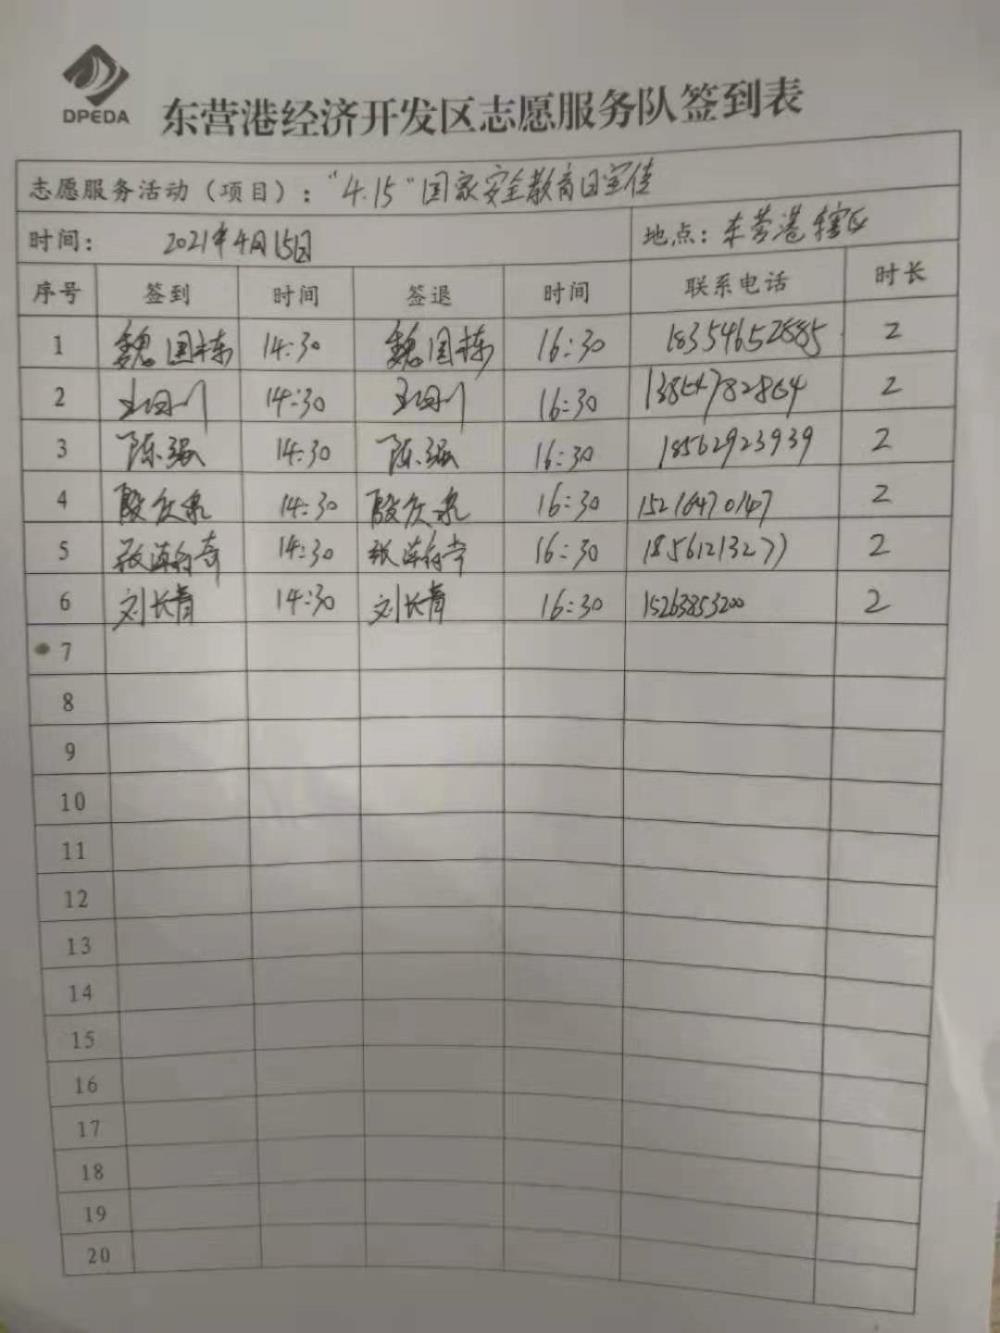 DPEDA
东营港经济开发区志愿服务队签到表
志愿服务活动（项目）："4.15"国家安全教育日宣传
时间： 2021年4月15日 地点：东营港辖区
序号 签到 时间 签退 时间 联系电话 时长
1 魏国栋 14:30 魏国栋 16:30 18354652885 2
2 14:30 16:30 13854782864 2
3 陈强 14:30 陈强 16:30 18562923939 2
4 14:30 16:30 15216470147 2
5 14:30 16:30 18561213277 2
6 刘长青 14:30 刘长青 16:30 15263853200 2
7
8
9
10
11
12
13
14
15
16
17
18
19
20